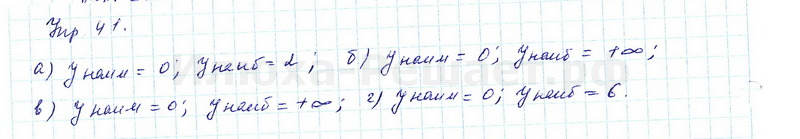 Упр 41.
а) у наим = 0; у наиб = 2; б) у наим = 0; у наиб = +∞;
в) у наим = 0; у наиб = +∞; г) у наим = 0; у наиб = 6.